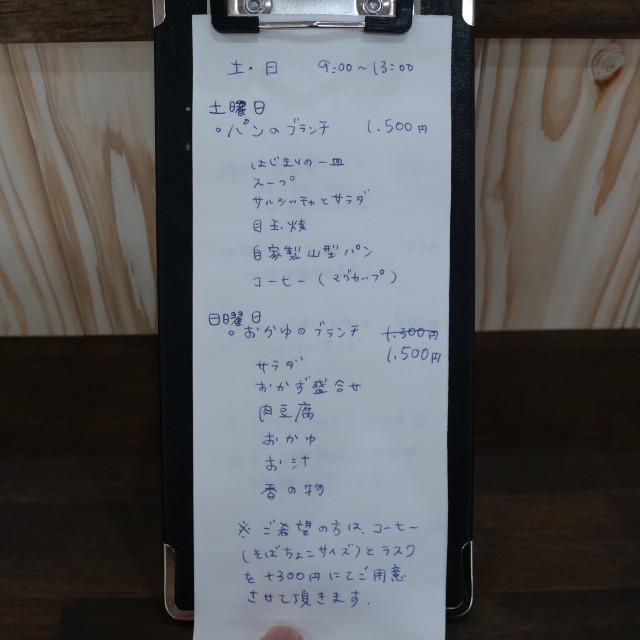 土・日 9:00〜13:00
土曜日
○パンのブランチ 1,500円
はじまりの一皿
スープ
サルシッチャとサラダ
目玉焼
自家製山型パン
コーヒー(マグカップ)
日曜日
○おかゆのブランチ 1,300円
1,500円
サラダ
おかず盛合せ
肉豆腐
おかゆ
お汁
香の物
※ ご希望の方は、コーヒー
(そばちょこサイズ)とラスク
を+300円にてご用意
させて頂きます.